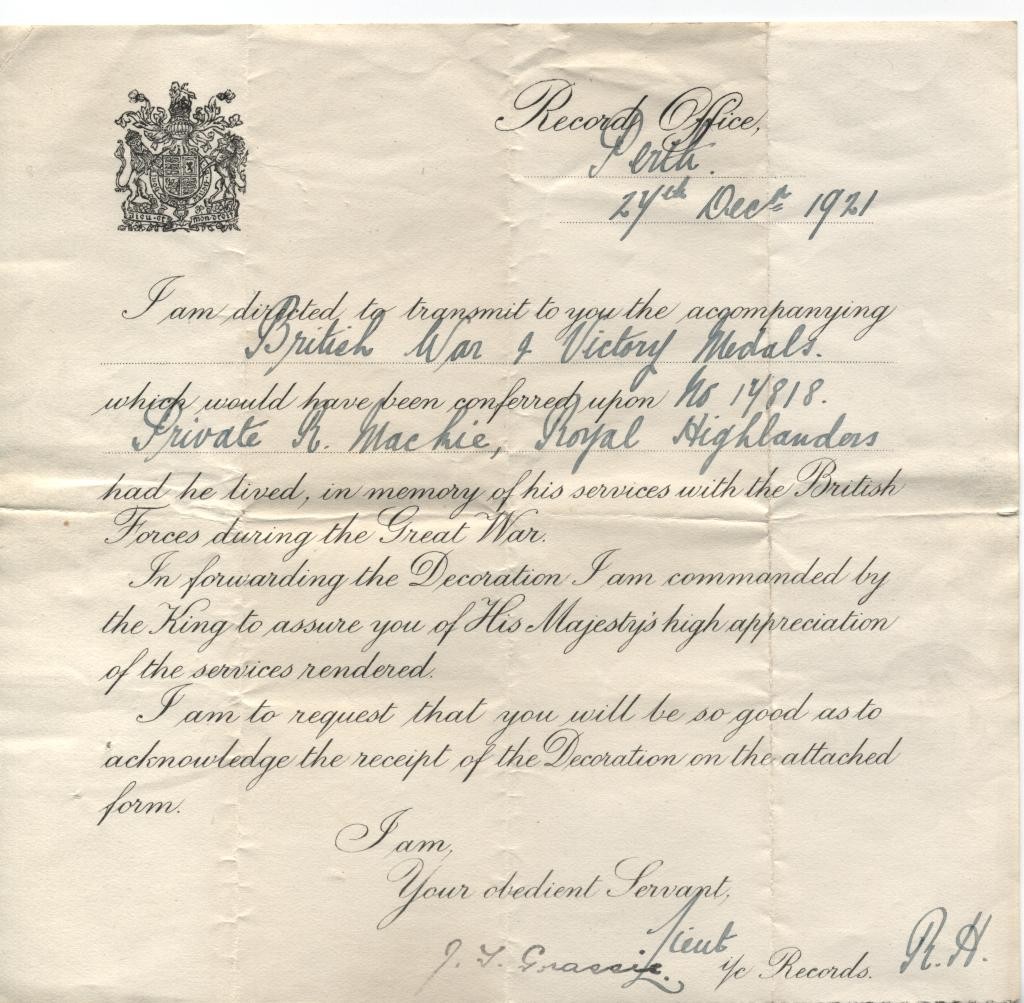 Record Office,
Perth.
27th Decr 1921
DIEU ET MON DROIT
I am directed to transmit to you the accompanying
British War & Victory Medals.
which would have been conferred upon No 17818.
Private R. Mackie, Royal Highlanders
had he lived, in memory of his services with the British
Forces during the Great War.
In forwarding the Decoration I am commanded by
the King to assure you of His Majesty's high appreciation
of the services rendered.
I am to request that you will be so good as to
acknowledge the receipt of the Decoration on the attached
form.
I am,
Your obedient Servant,
J. T. Grassie. Lieut
i/c Records. R.H.